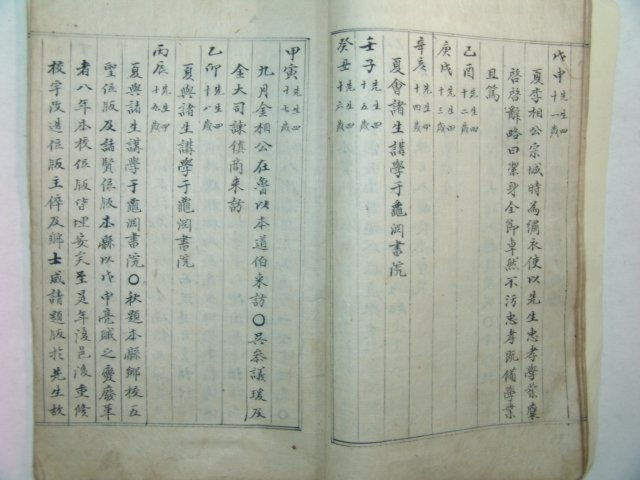 戊申先生四十一歲
夏李相公宗城時爲繡衣使以先生忠孝學業
啓啓辭略曰潔身全節卓然不汚忠孝旣備學業
且篤
己酉先生四十二歲
庚戌先生四十三歲
辛亥先生四十四歲
壬子先生四十五歲
夏會諸生講學于龜淵書院
癸丑先生四十六歲
甲寅先生四十七歲
九月金相公在魯以本道伯來訪〇吳參議瑗及
金大司諫鎭商來訪
乙卯先生四十八歲
夏與諸生講學于龜淵書院
丙辰先生四十九歲
夏與諸生講學于龜淵書院〇秋題本縣鄕校五
聖位版及諸賢位版本縣以戊申亮賊之變廢革
者八年本校位版皆埋安矣至是年復邑後重修
校宇改造位版主倅及鄕士咸請題版於先生故